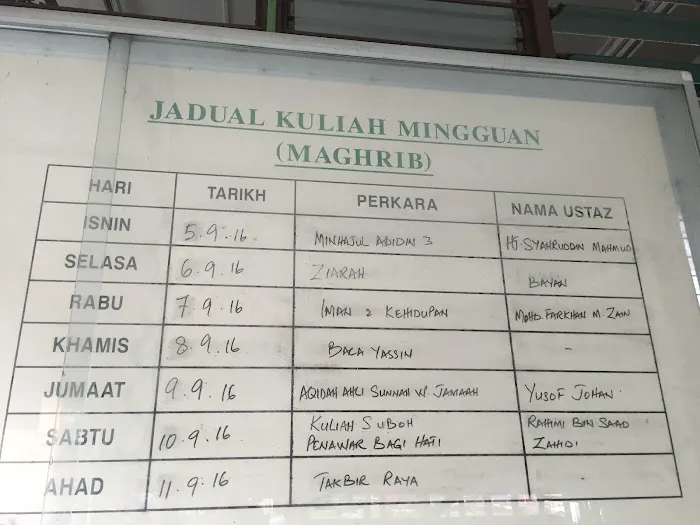 JADUAL KULIAH MINGGUAN
(MAGHRIB)
HARI TARIKH PERKARA NAMA USTAZ
ISNIN 5.9.16 MINHAJUL ABIDIN 3 HJ. SYAHRUDDIN MAHMUD
SELASA 6.9.16 ZIARAH BAYAN
RABU 7.9.16 IMAN & KEHIDUPAN MOHD. FARKHAN M. ZAIN
KHAMIS 8.9.16 BACA YASSIN -
JUMAAT 9.9.16 AQIDAH AHLI SUNNAH W. JAMAAH YUSOF JOHAN
SABTU 10.9.16 KULIAH SUBOH RAHIMI BIN SAAD
PENAWAR BAGI HATI ZAHDI
AHAD 11.9.16 TAKBIR RAYA